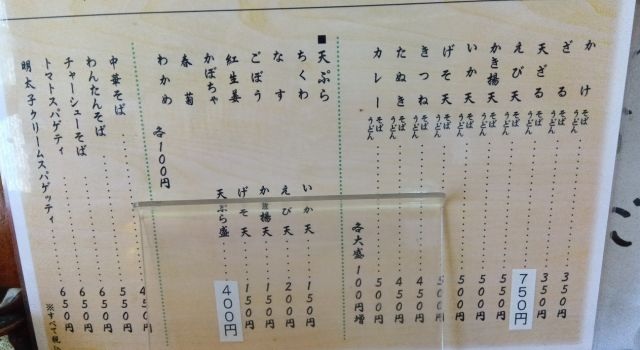 かけ そば うどん 350円
ざる そば うどん 350円
天ざる そば うどん 750円
えび天 そば うどん 550円
かき揚天 そば うどん 500円
いか天 そば うどん 500円
げそ天 そば うどん 500円
きつね そば うどん 450円
たぬき そば うどん 450円
カレー そば うどん 500円
各大盛100円増
■天ぷら
ちくわ
なす
ごぼう
紅生姜
かぼちゃ
春菊
わかめ
各100円
いか天 150円
えび天 200円
かき揚天 150円
げそ天 150円
天ぷら盛 400円
中華そば 450円
わんたんそば 550円
チャーシューそば 650円
トマトスパゲティ 650円
明太子クリームスパゲッティ 650円
※すべて税